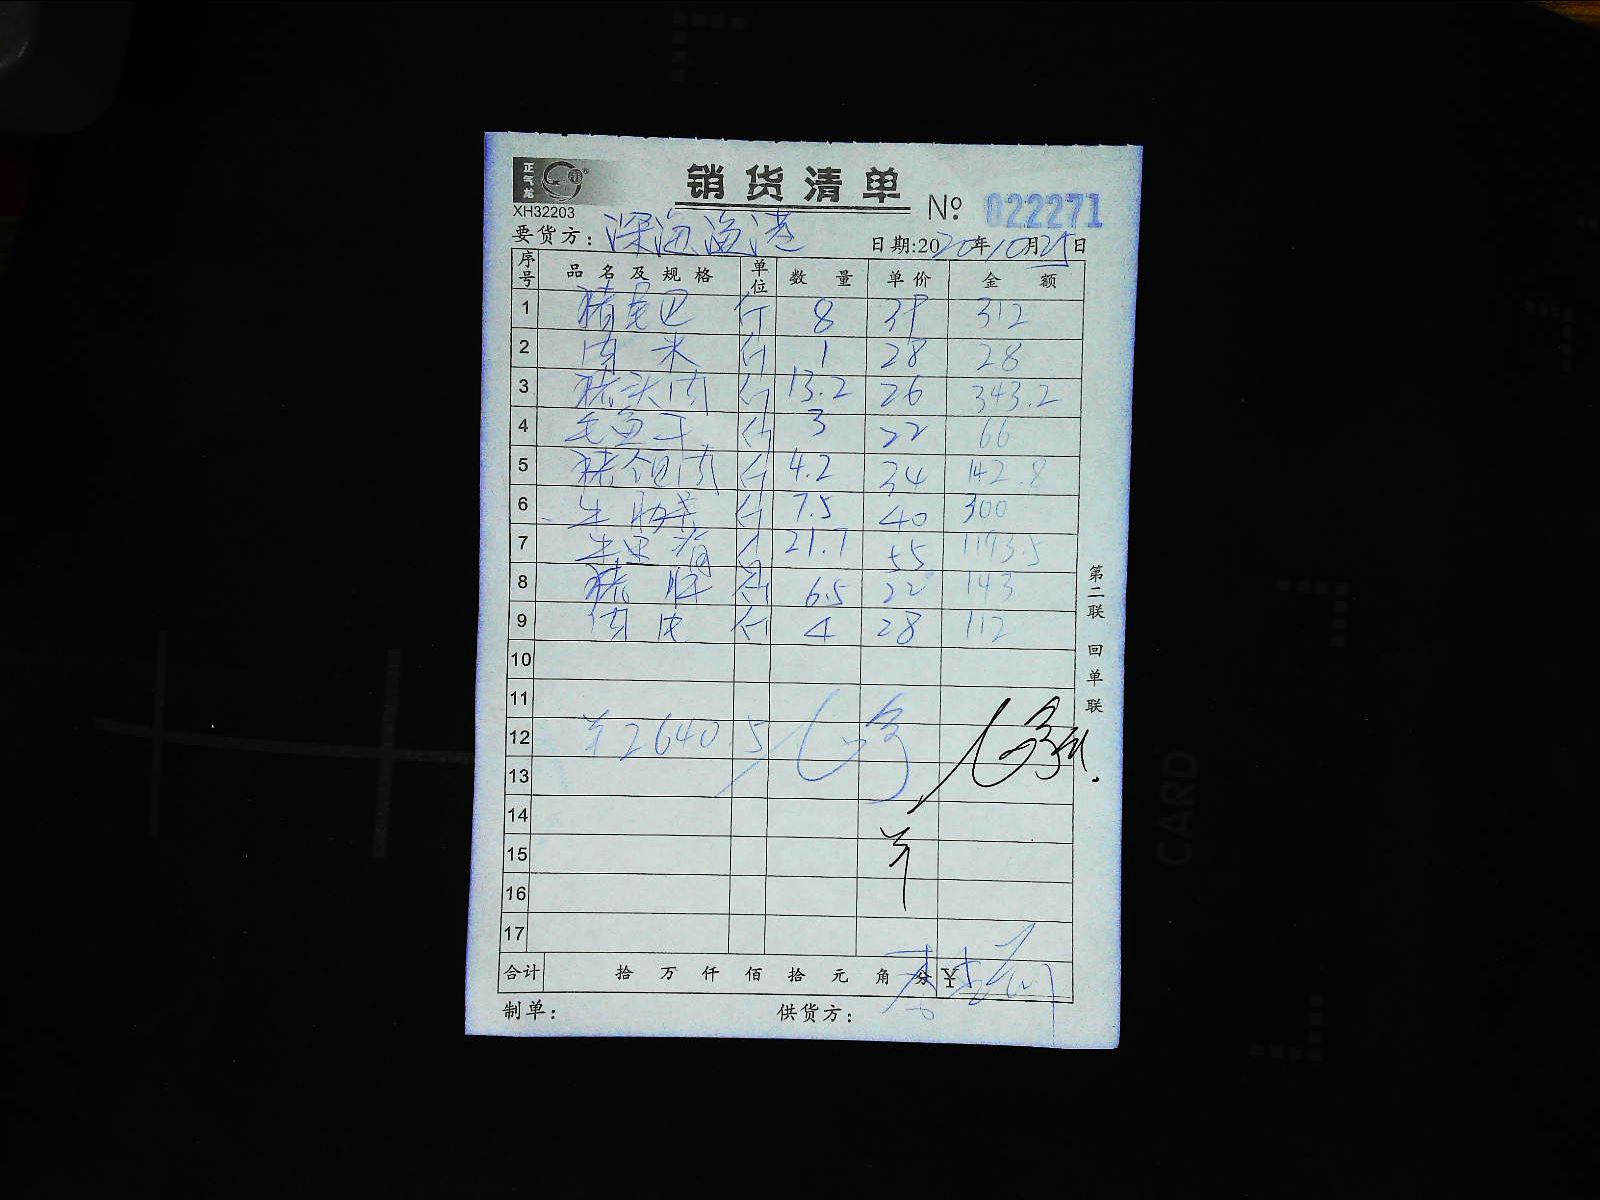 正气龙
销货清单
XH32203
№ 022271
要货方: 深海渔港 日期:2020年10月25日
序号 品名及规格 单位 数量 单价 金额
1 猪尾巴 斤 8 39 312
2 肉米 斤 1 28 28
3 猪头肉 斤 13.2 26 343.2
4 毛鱼干 斤 3 22 66
5 斤 4.2 34 142.8
6 牛肋 斤 7.5 40 300
7 斤 21.7 55 1193.5
8 猪肝 斤 6.5 22 143
9 肉皮 斤 4 28 112
10
11
12 ¥2640.5
13
14
15
16
17
合计 拾 万 仟 佰 拾 元 角 分 ¥
制单: 供货方:
第二联 回单联
CARD